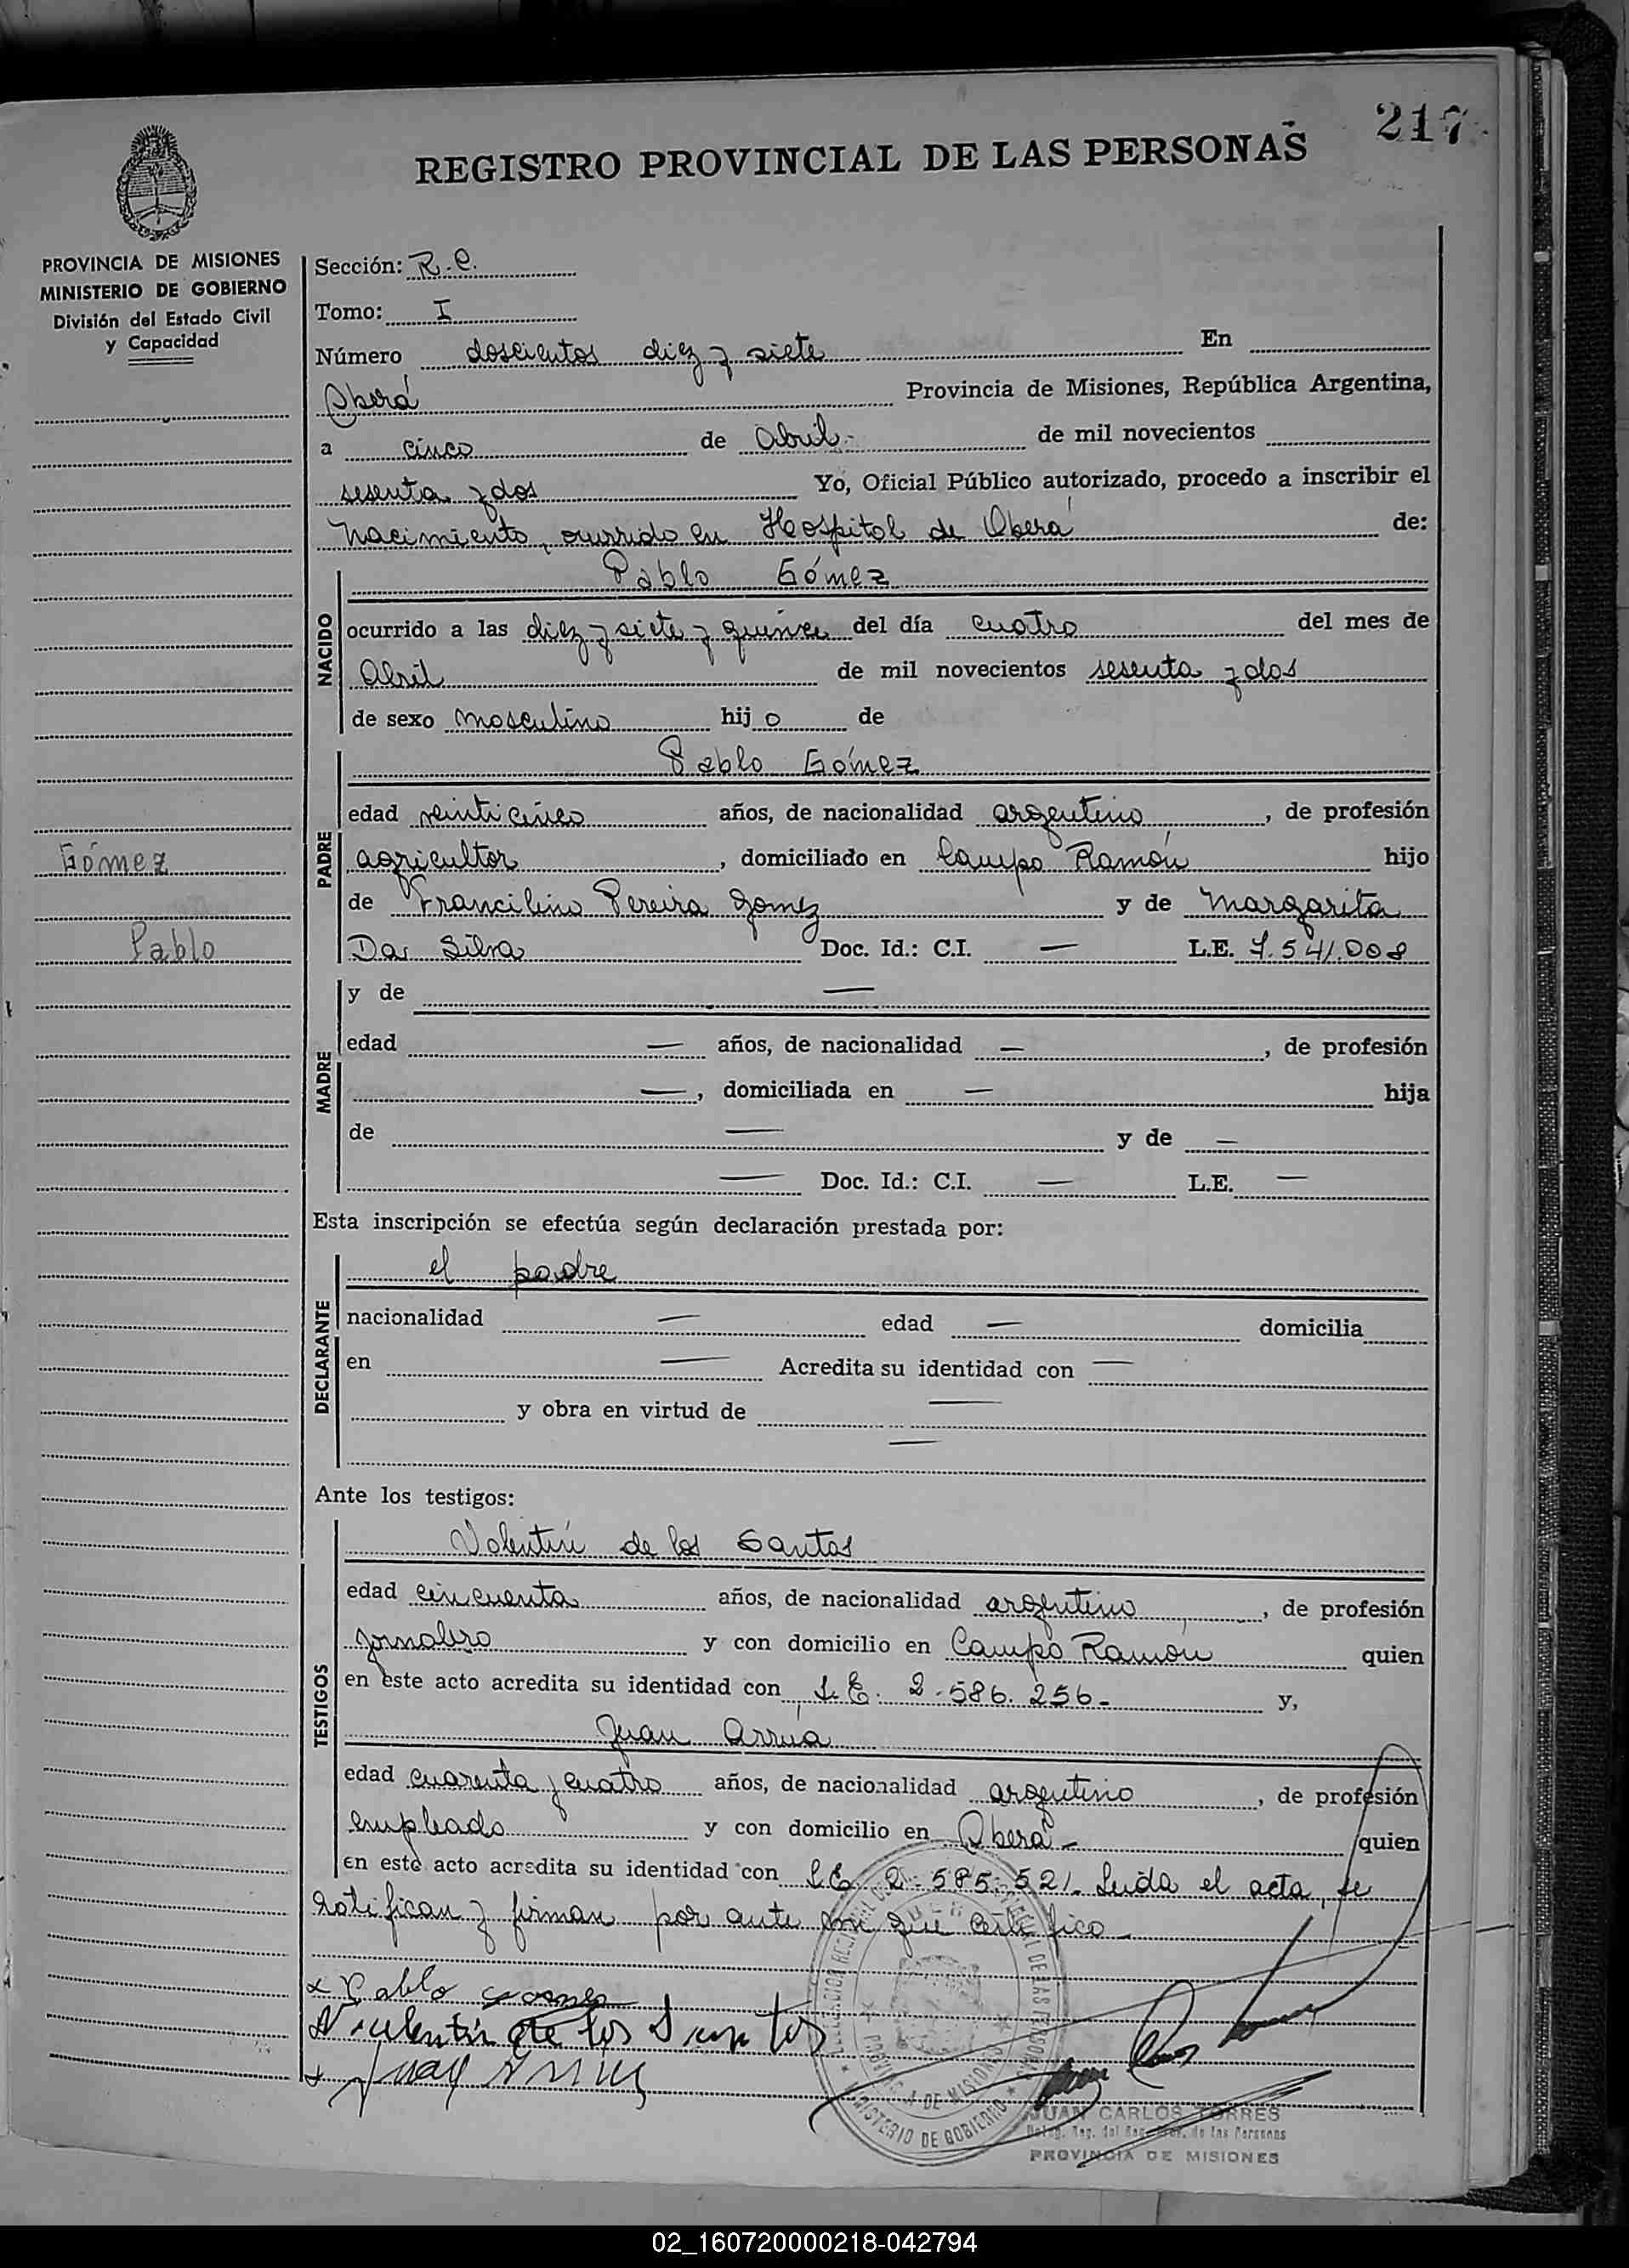 217
REGISTRO PROVINCIAL DE LAS PERSONAS
PROVINCIA DE MISIONES
MINISTERIO DE GOBIERNO
División del Estado Civil
y Capacidad
Gómez
Pablo
Sección: R.C.
Tomo: I
Número doscientos diez y siete En
Oberá Provincia de Misiones, República Argentina,
a cinco de Abril- de mil novecientos
sesenta y dos Yo, Oficial Público autorizado, procedo a inscribir el
Nacimiento, ocurrido en Hospital de Oberá de:
NACIDO
Pablo Gómez
ocurrido a las diez y siete y quince del día cuatro del mes de
Abril de mil novecientos sesenta y dos
de sexo masculino hijo de
PADRE
Pablo Gómez
edad veinticinco años, de nacionalidad argentino, de profesión
agricultor, domiciliado en Campo Ramón hijo
de Francilino Pereira Gomez y de Margarita
Da Silva Doc. Id.: C.I. — L.E. 7.541.008
MADRE
y de —
edad — años, de nacionalidad —, de profesión
—, domiciliada en — hija
de — y de —
— Doc. Id.: C.I. — L.E. —
Esta inscripción se efectúa según declaración prestada por:
DECLARANTE
el padre
nacionalidad — edad — domicilia
en — Acredita su identidad con —
y obra en virtud de —
—
Ante los testigos:
TESTIGOS
Valentín de los Santos
edad cincuenta años, de nacionalidad argentino, de profesión
jornalero y con domicilio en Campo Ramón quien
en este acto acredita su identidad con L.E. 2.586.256- y,
Juan Arrua
edad cuarenta y cuatro años, de nacionalidad argentino, de profesión
empleado y con domicilio en Oberá- quien
en este acto acredita su identidad con L.E. 2.585.521- Leida el acta, se
ratifican y firman por ante mi que certifico-
x Pablo Gomez
x Valentín de los Santos
x Juan Arrua
PROVINCIA DE MISIONES
MINISTERIO DE GOBIERNO
JUAN CARLOS TORRES
PROVINCIA DE MISIONES
02_160720000218-042794